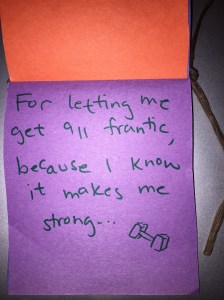 For letting me
get all frantic,
because I know
it makes me
strong...